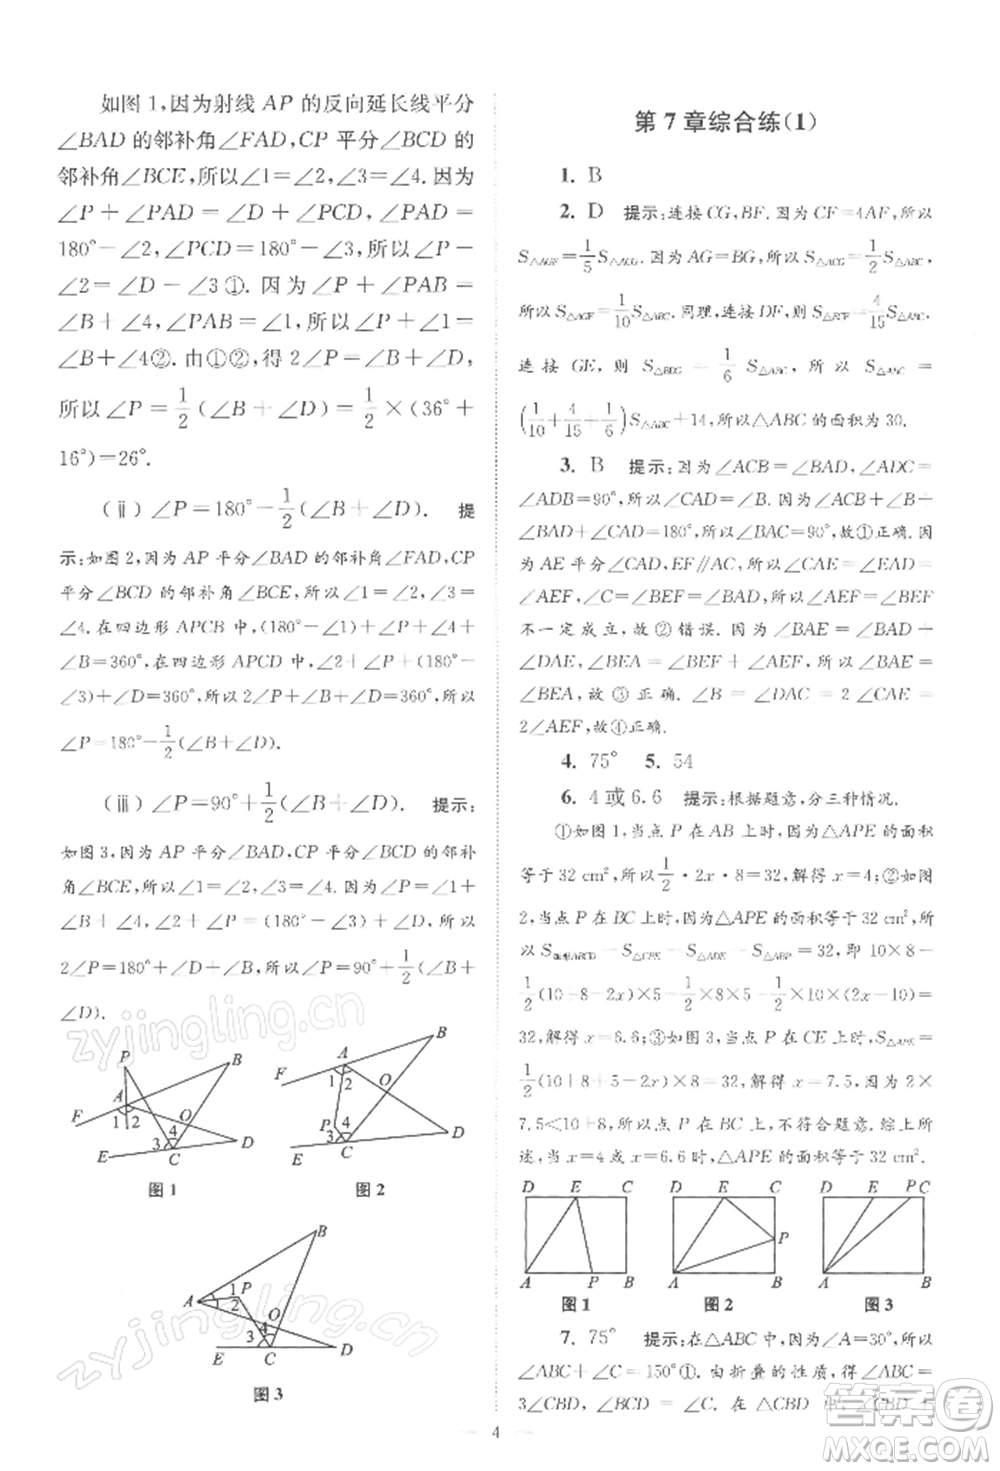 如图1,因为射线 AP 的反向延长线平分
∠BAD 的邻补角∠FAD,CP 平分∠BCD 的
邻补角∠BCE,所以∠1=∠2,∠3=∠4.因为
∠P+∠PAD=∠D+∠PCD,∠PAD=
180°-∠2,∠PCD=180°-∠3,所以∠P-
∠2=∠D-∠3①.因为∠P+∠PAB=
∠B+∠4,∠PAB=∠1,所以∠P+∠1=
∠B+∠4②.由①②,得2∠P=∠B+∠D,
所以∠P=1/2(∠B+∠D)=1/2×(36°+
16°)=26°.
(ⅱ) ∠P=180°-1/2(∠B+∠D). 提
示:如图2,因为 AP 平分∠BAD 的邻补角∠FAD,CP
平分∠BCD 的邻补角∠BCE,所以∠1=∠2,∠3=
∠4.在四边形 APCB 中,(180°-∠1)+∠P+∠4+
∠B=360°,在四边形 APCD 中,∠2+∠P+(180°-
∠3)+∠D=360°,所以2∠P+∠B+∠D=360°,所以
∠P=180°-1/2(∠B+∠D).
(ⅲ) ∠P=90°+1/2(∠B+∠D). 提示:
如图3,因为 AP 平分∠BAD,CP 平分∠BCD 的邻补
角∠BCE,所以∠1=∠2,∠3=∠4.因为∠1+∠P=
∠B+∠4,∠2+∠P=(180°-∠3)+∠D,所以
2∠P=180°+∠B+∠D,所以∠P=90°+1/2(∠B+
∠D).
P B A O F 1 2 4 3 D E C
图1
A B F 1 2 O P 4 3 D E C
图2
B 1 P A 2 O 4 3 E C D
图3
第7章综合练(1)
1. B
2. D 提示:连接CG,BF.因为CF=4AF,所以
S△AGF=1/5S△ACG.因为AG=BG,所以S△ACG=1/2S△ABC,
所以S△AGF=1/10S△ABC.同理,连接DF,所以S△ECF=4/15S△ABC,
连接GE,则 S△BDG=1/6S△ABC.所以S△ABC=
(1/10+4/15+1/6)S△ABC+14,所以△ABC的面积为30.
3. B 提示:因为∠ACB=∠BAD,∠ADC=
∠ADB=90°,所以∠CAD=∠B.因为∠ACB+∠B+
∠BAD+∠CAD=180°,所以∠BAC=90°,故①正确.因
为AE平分∠CAD,EF∥AC,所以∠CAE=∠DAE=
∠AEF,∠C=∠BEF,所以∠AEF=∠BEF
不一定成立,故②错误.因为∠BAE=∠BAD+
∠DAE,∠BEA=∠BEF+∠AEF,所以∠BAE=
∠BEA,故③正确.∠B=∠DAC=2∠CAE=
2∠AEF,故④正确.
4. 75° 5. 54
6. 4或6.6 提示:根据题意,分三种情况.
①如图1,当点 P 在 AB 上时,因为△APE的面积
等于32 cm²,所以1/2·2x·8=32,解得x=4;②如图
2,当点 P 在 BC 上时,因为△APE的面积等于32 cm²,所
以S长方形ABCD-S△CPE-S△ADE-S△ABP=32,即10×8-
1/2(10+8-2x)×5-1/2×8×5-1/2×10×(2x-10)=
32,解得x=6.6;③如图3,当点 P 在 CE 上时,S△APE=
1/2(10+8+5-2x)×8=32,解得x=7.5,因为2×
7.5<10+8,所以点 P 在 BC 上,不符合题意.综上所
述,当x=4或x=6.6时,△APE的面积等于32 cm².
D E C A P B
图1
D E C P A B
图2
D E P C A B
图3
7. 75° 提示:在△ABC中,因为∠A=30°,所以
∠ABC+∠C=150°①.由折叠的性质,得∠ABC=
3∠CBD.因为∠CBD
4
zyjingling.cn
zyjingling.cn
答案圈
MXQE.COM